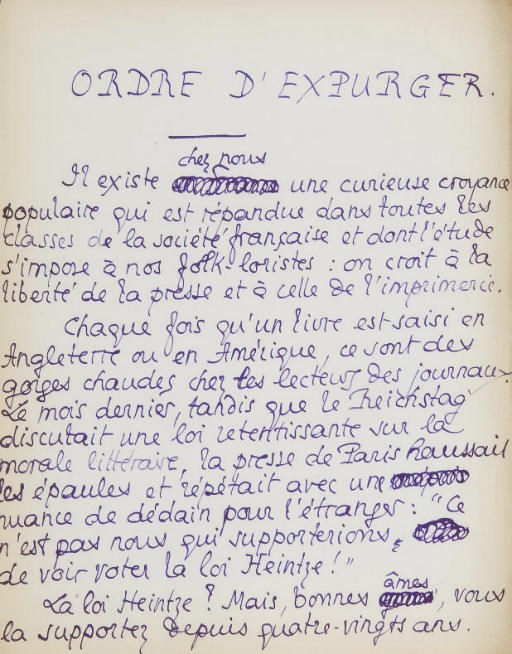 ORDRE D'EXPURGER.
chez nous
Il existe une curieuse croyance
populaire qui est répandue dans toutes les
classes de la société française et dont l'étude
s'impose à nos folk-loristes : on croit à la
liberté de la presse et à celle de l'imprimerie.
Chaque fois qu'un livre est saisi en
Angleterre ou en Amérique, ce sont des
gorges chaudes chez les lecteurs des journaux.
Le mois dernier, tandis que le Reichstag
discutait une loi retentissante sur la
morale littéraire, la presse de Paris haussait
les épaules et répétait avec une
nuance de dédain pour l'étranger : "Ce
n'est pas nous qui supporterions
de voir voter la loi Heintze !"
âmes
La loi Heintze ? Mais, bonnes , vous
la supportez depuis quatre-vingts ans.